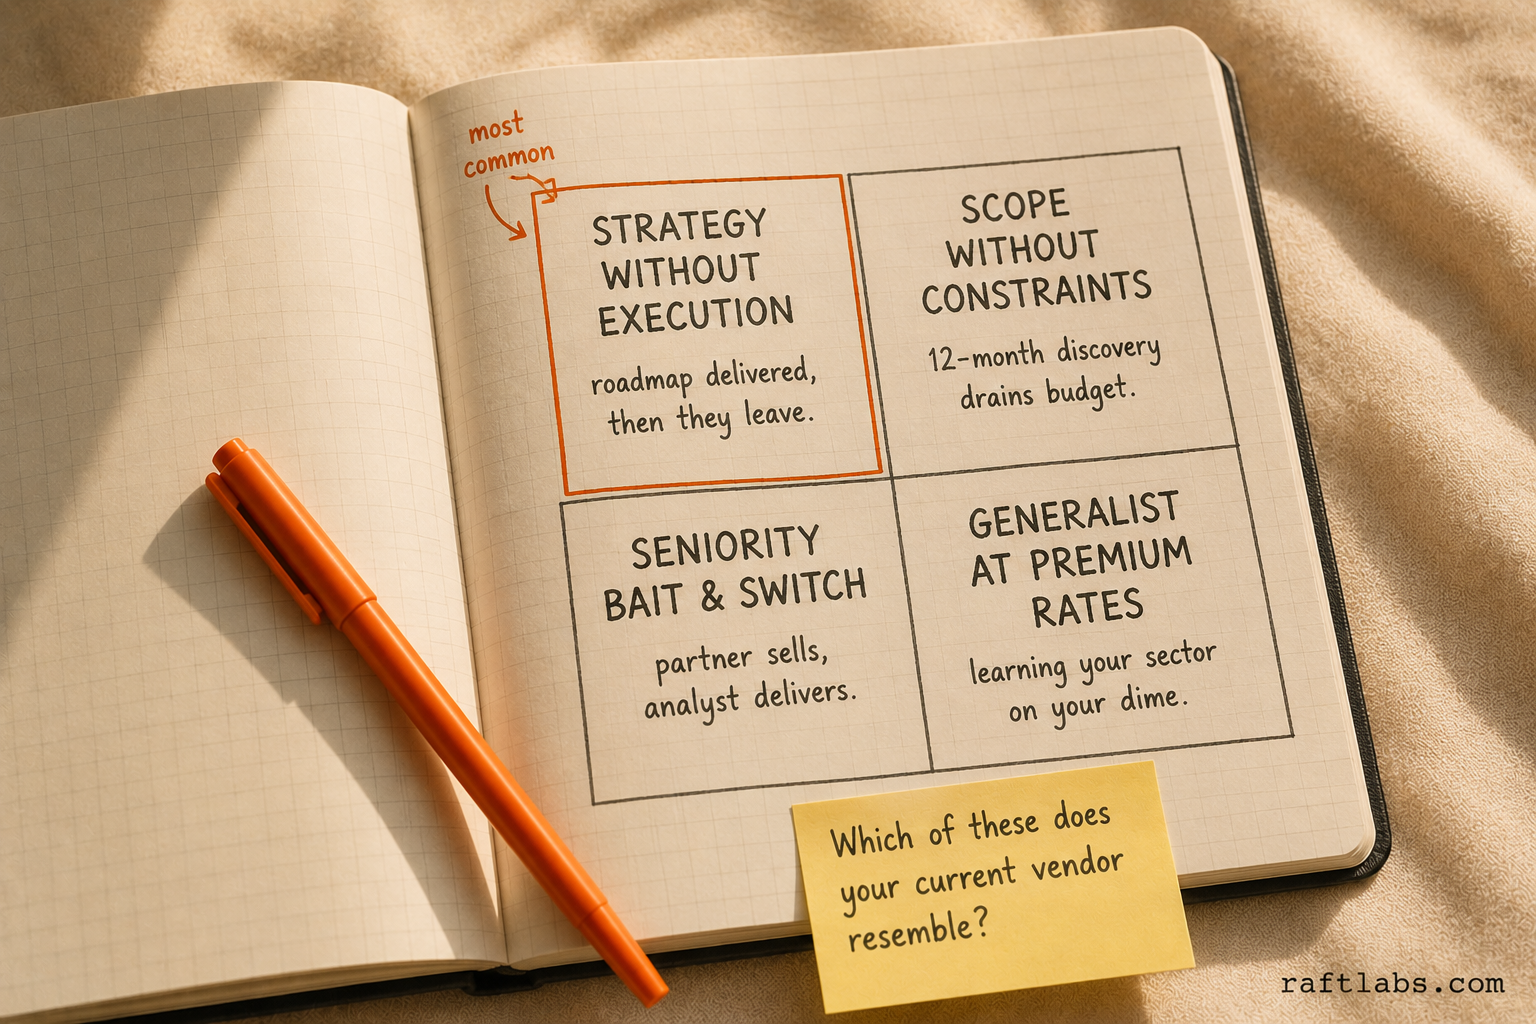 most
common
STRATEGY
WITHOUT
EXECUTION
roadmap delivered,
then they leave.
SCOPE
WITHOUT
CONSTRAINTS
12-month discovery
drains budget.
SENIORITY
BAIT & SWITCH
partner sells,
analyst delivers.
GENERALIST
AT PREMIUM
RATES
learning your sector
on your dime.
Which of these does
your current vendor
resemble?
raftlabs.com